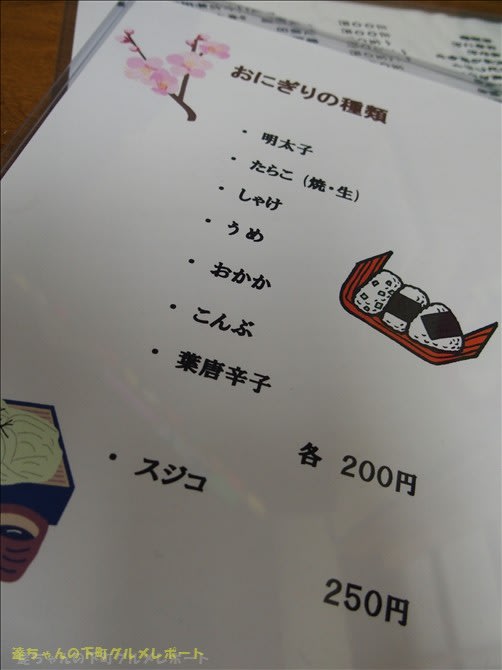 おにぎりの種類
・ 明太子
・ たらこ (焼・生)
・ しゃけ
・ うめ
・ おかか
・ こんぶ
・ 葉唐辛子
各 200円
・ スジコ
250円
達ちゃんの下町グルメレポート